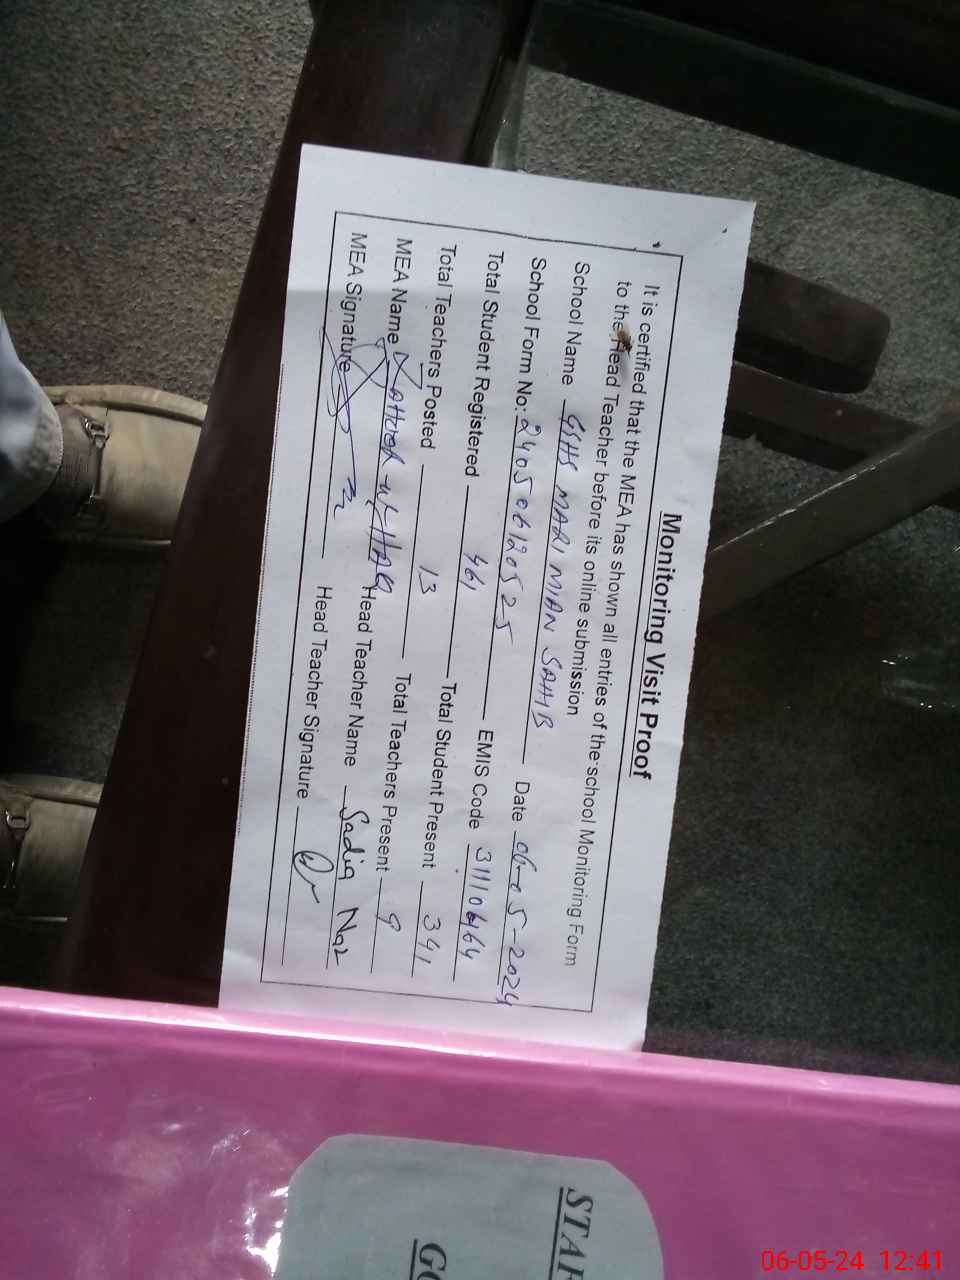 Monitoring Visit Proof
It is certified that the MEA has shown all entries of the school Monitoring Form
to the Head Teacher before its online submission
School Name GHS MARI MIAN SAHIB
School Form No: 240506120525 Date 06-05-2024
Total Student Registered 461 EMIS Code 31110464
Total Teachers Posted 13 Total Student Present 341
MEA Name ul-HAQ Total Teachers Present 9
MEA Signature Head Teacher Name Sadiq Naz
Head Teacher Signature
STAF
GO
06-05-24 12:41